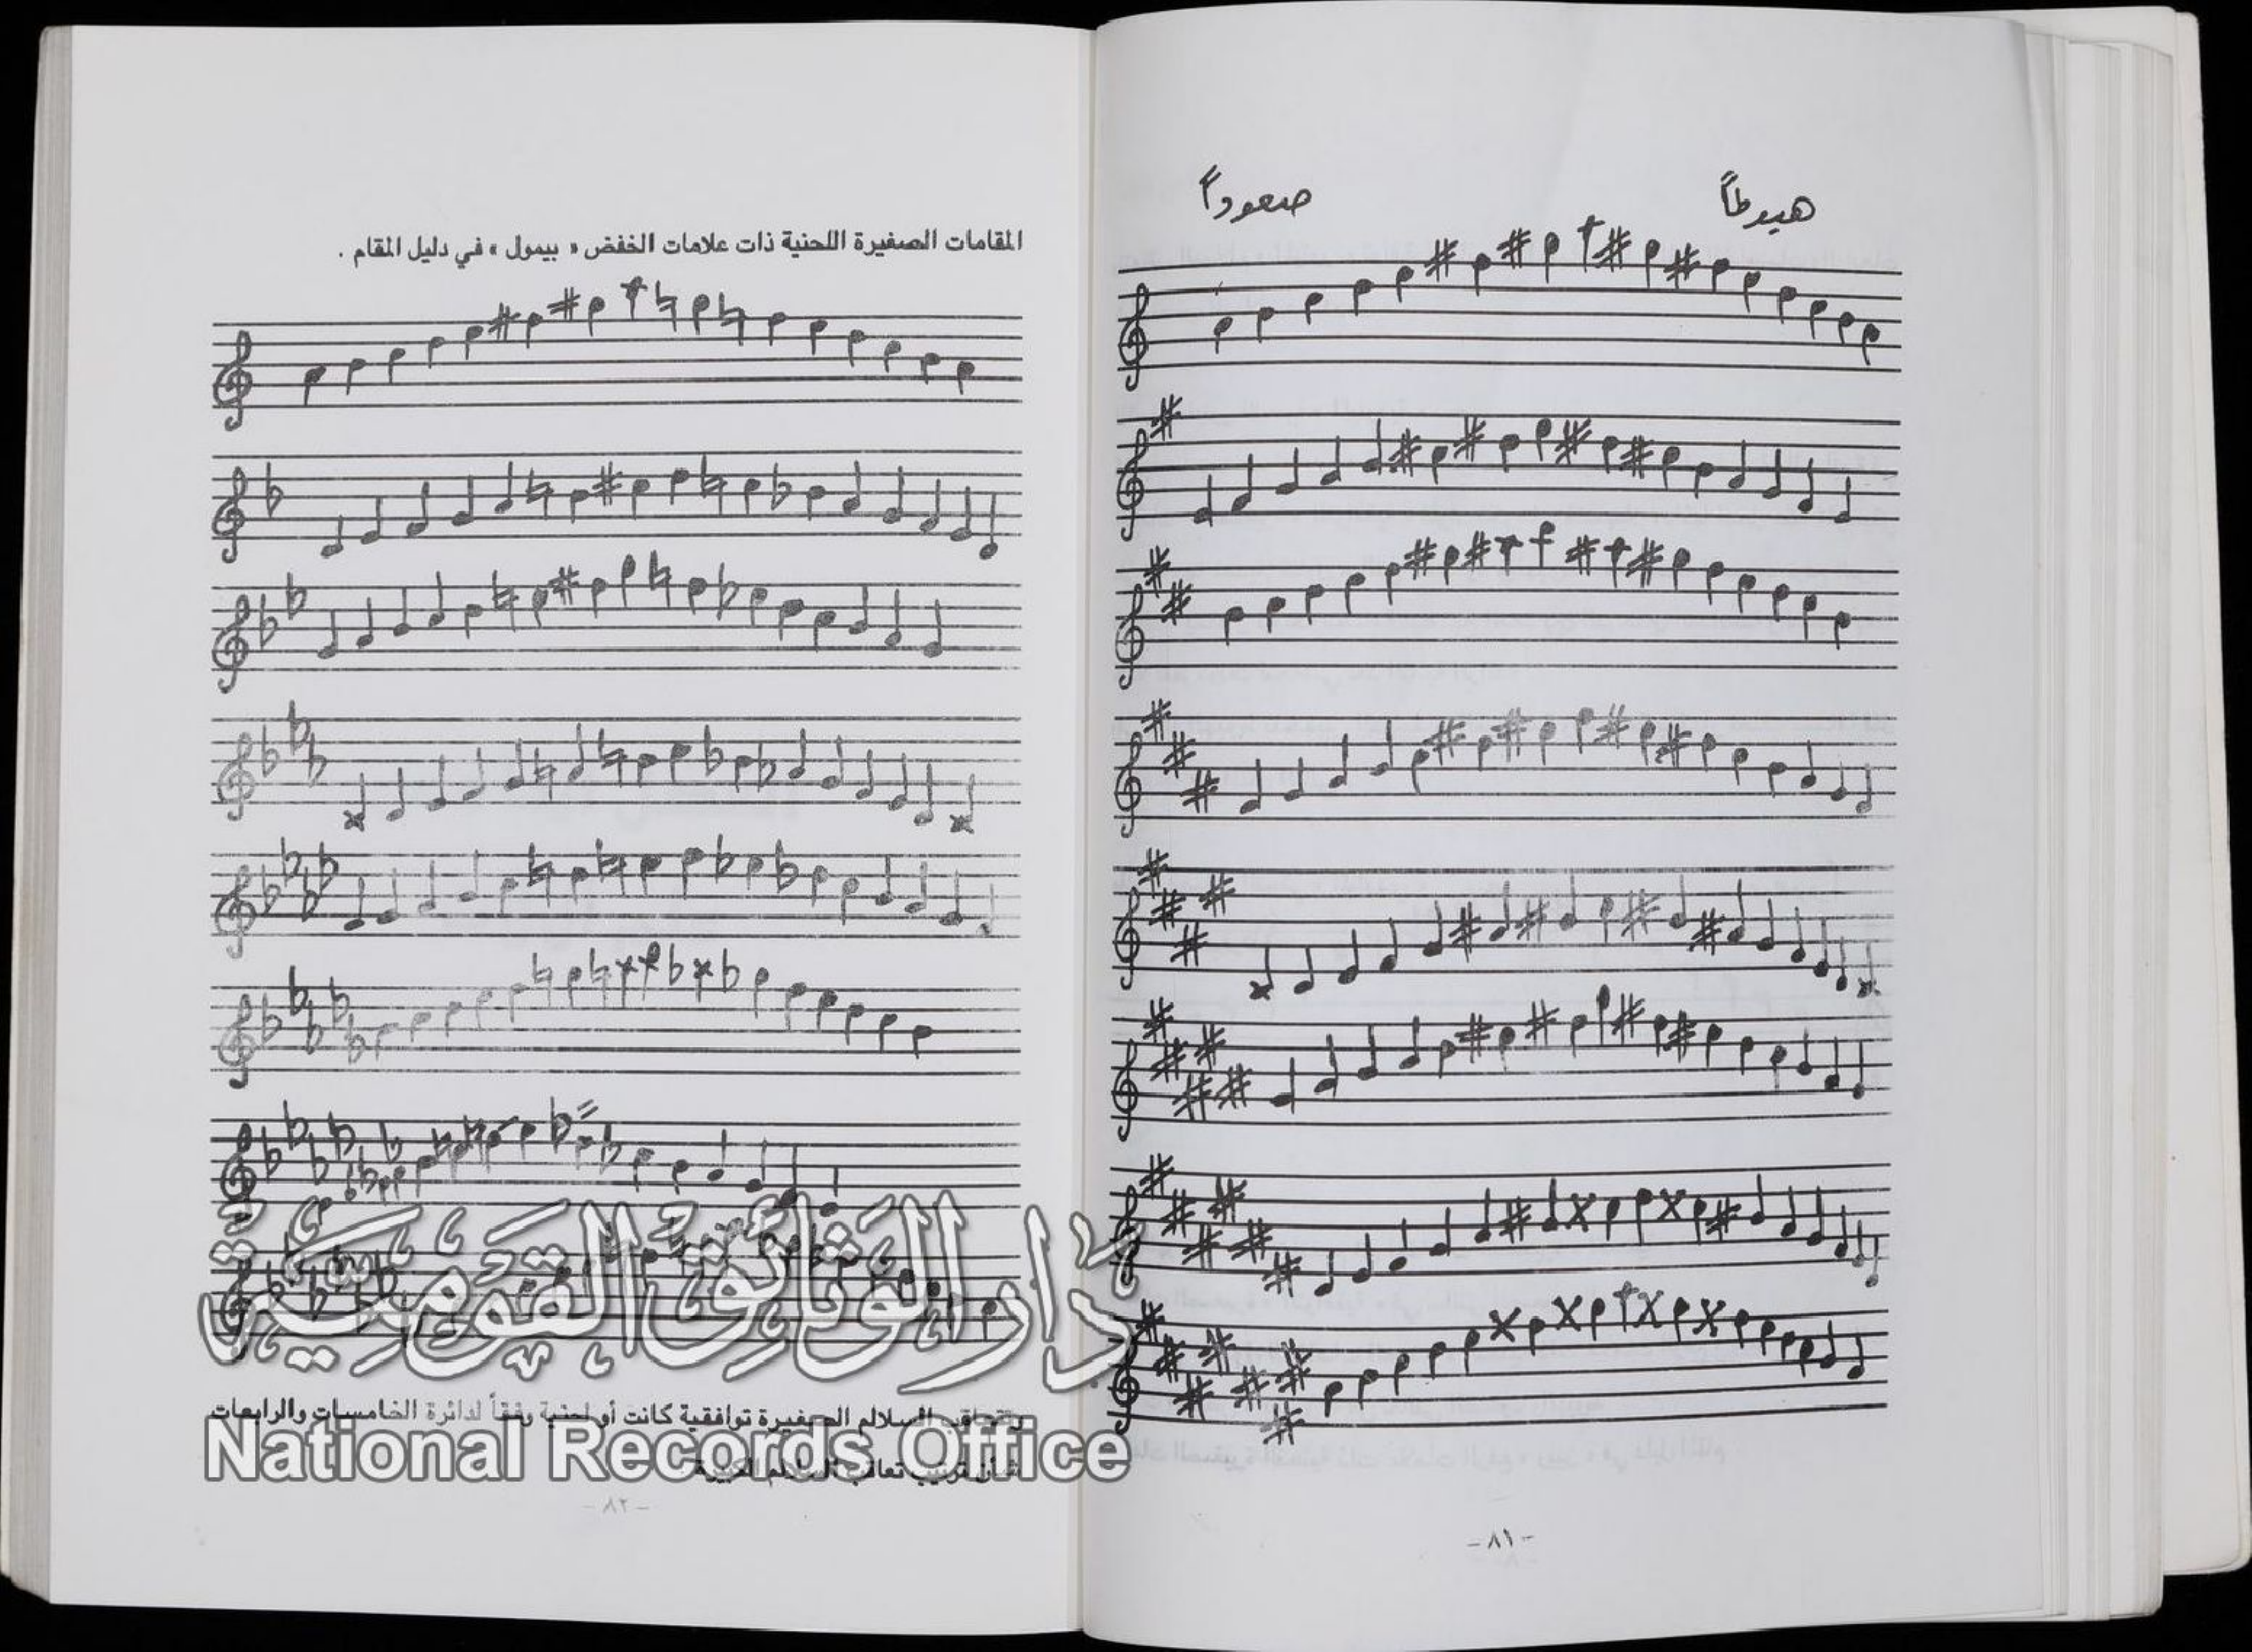 صعوداً
هبوطاً
- ٨١ -
المقامات الصغيرة اللحنية ذات علامات الخفض « بيمول » في دليل المقام .
وتتعاقب السلالم الصغيرة توافقية كانت أو لحنية وفقاً لدائرة الخامسات والرابعات
شأن ترتيب تعاقب السلالم الكبيرة
- ٨٢ -
دار الوثائق القومية
National Records Office